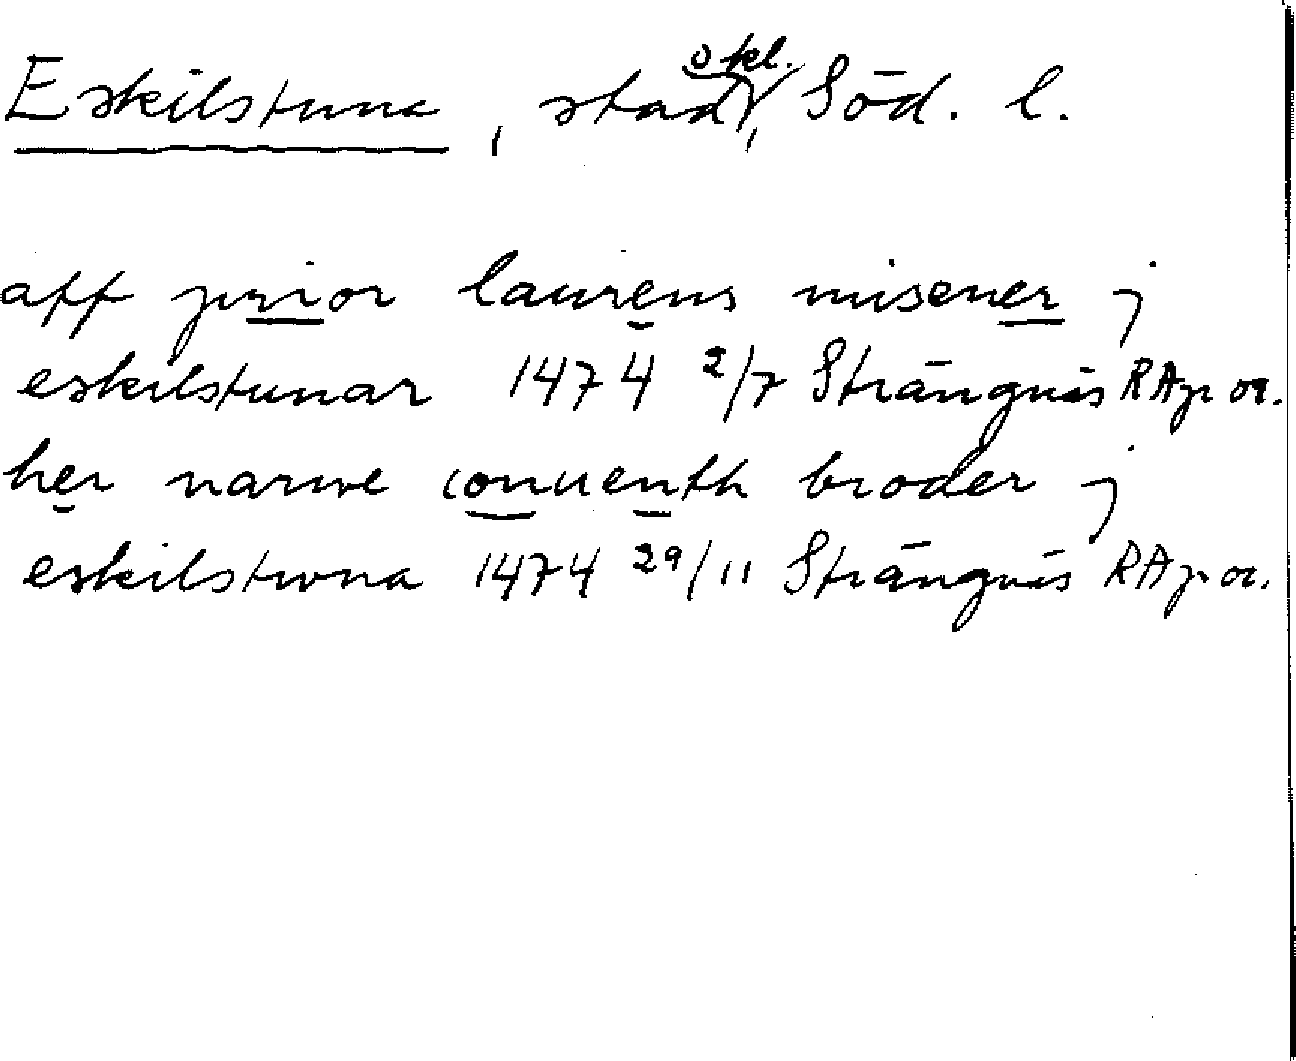 Eskilstuna, stad o kl., Söd. l.
aff prior laurens misener j
eskilstunar 1474 2/7 Strängnäs RAp or.
her narwe conuenth broder j
eskilstwna 1474 29/11 Strängnäs RAp or.